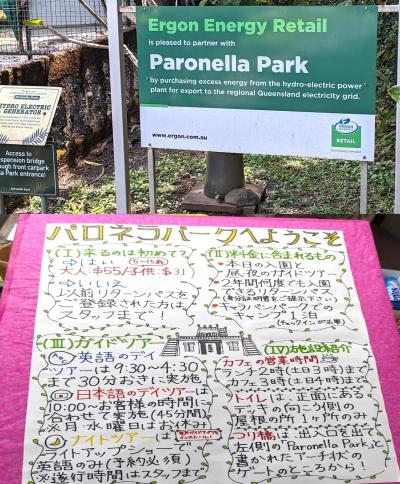 Ergon Energy Retail
is pleased to partner with
Paronella Park
by purchasing excess energy from the hydro-electric power
plant for export to the regional Queensland electricity grid.
www.ergon.com.au
ERGON
RETAIL
HYDRO ELECTRIC
GENERATOR
Access to
suspension bridge
through front carpark
(Park entrance)
パロネラパークへようこそ
(Ⅰ)来るのは初めて?
⇨はい (5~15歳)
大人:$55/子供:$31
⇨いいえ
以前リターンパスを
登録された方は
スタッフまで!
(Ⅱ)料金に含まれるもの
・本日の入園と
昼夜のガイドツアー
・2年間何度でも入園
できるリターンパス
(身分証明書をご提示下さい)
・キャラバンパークでの
キャンプ1泊
(チェックインが必要)
(Ⅲ)ガイドツアー
英語のデイ
ツアーは9:30~4:30
まで30分おきに実施
日本語のデイツアーは
10:00~お客様の時間に
合わせて実施(45分間)
※月・水曜日はお休み!
ナイトツアーは
ライトアップショーで
英語のみ(予約必須)
※遂行時間はスタッフまで
(Ⅳ)施設紹介
カフェの営業時間
ランチ2時(土日3時)まで
カフェ3時(土日4時)まで
トイレは、正面にある
デッキの向こう側の
屋根の所1ヶ所のみ
つり橋は、出入口を出て
左側の「Paronella Park」と
書かれたアーチ状の
ゲートのところから!